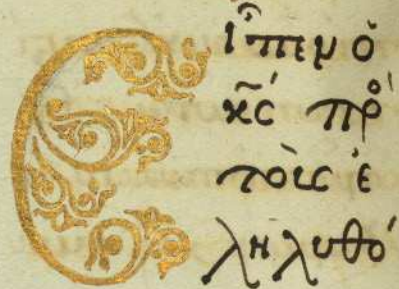 Εἶπεν ὁ
κ̃ς πρὸ
τοὺς ἐ
ληλυθό